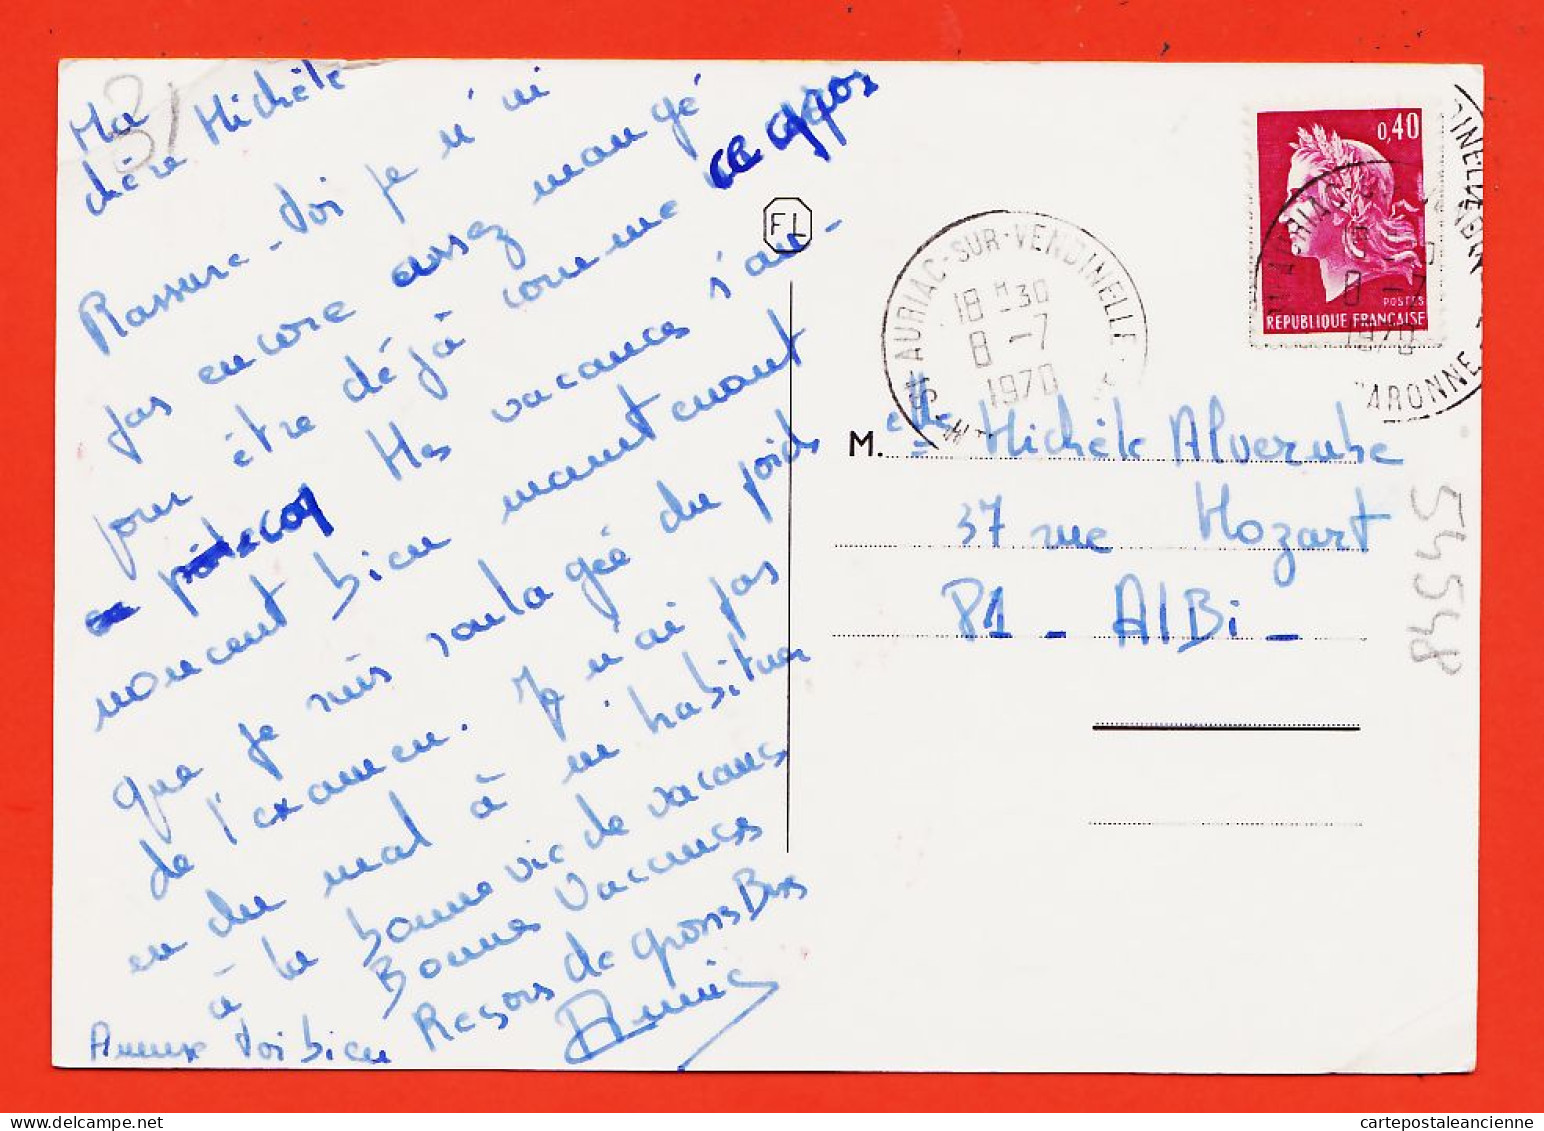 Ma
chère Michèle
Rassure-toi je n'ai
pas encore assez mangé
pour être déjà comme ce gros
Mes vacances s'an-
noncent bien maintenant
que je suis soulagée du poids
de l'examen. Je n'ai pas
eu du mal à m'habituer
à la bonne vie de vacances
Bonnes Vacances
Reçois de grosses Bises
Amuse toi bien
Annie
31
FL
ST AURIAC-SUR-VENDINELLE
18 H 30
8 - 7
1970
0,40
POSTES
REPUBLIQUE FRANÇAISE
8 - 7
1970
GARONNE
M.elle Michèle
37 rue Mozart
81 - AlBi -
54548
cartepostaleancienne.com